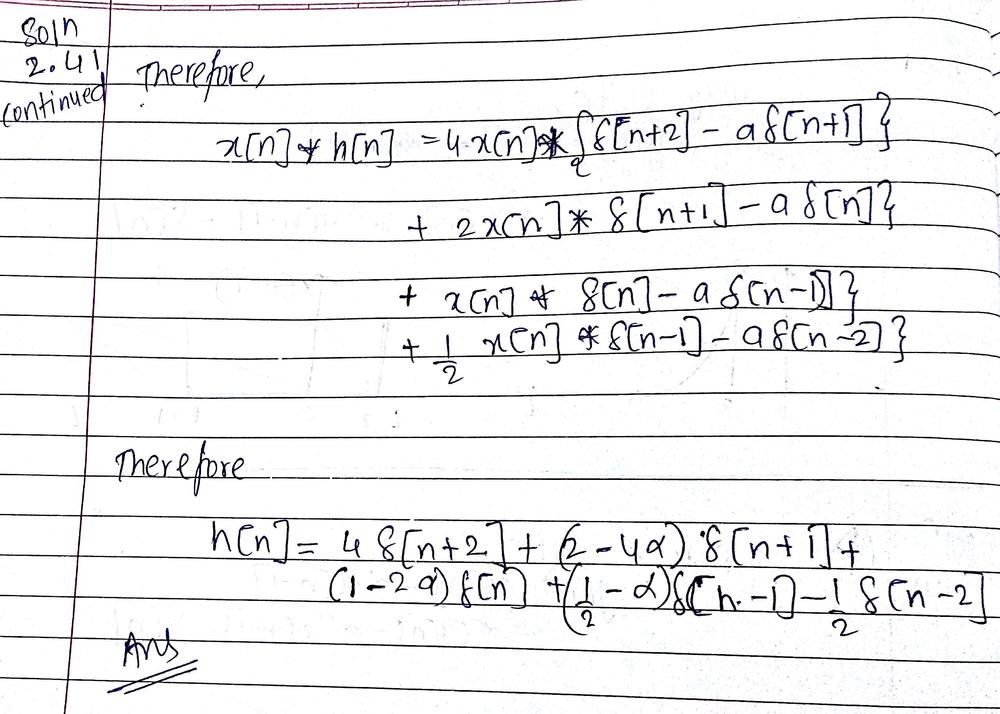 Soln
2.41
continued
Therefore,
x[n] * h[n] = 4 x[n] * {δ[n+2] - aδ[n+1]}
+ 2x[n] * δ[n+1] - a δ[n]}
+ x[n] * δ[n] - a δ[n-1]}
+ 1/2 x[n] * δ[n-1] - aδ[n-2]}
Therefore
h[n] = 4 δ[n+2] + (2-4α) δ[n+1] +
(1-2α) δ[n] + (1/2 - α)δ[n-1] - 1/2 δ[n-2]
Ans